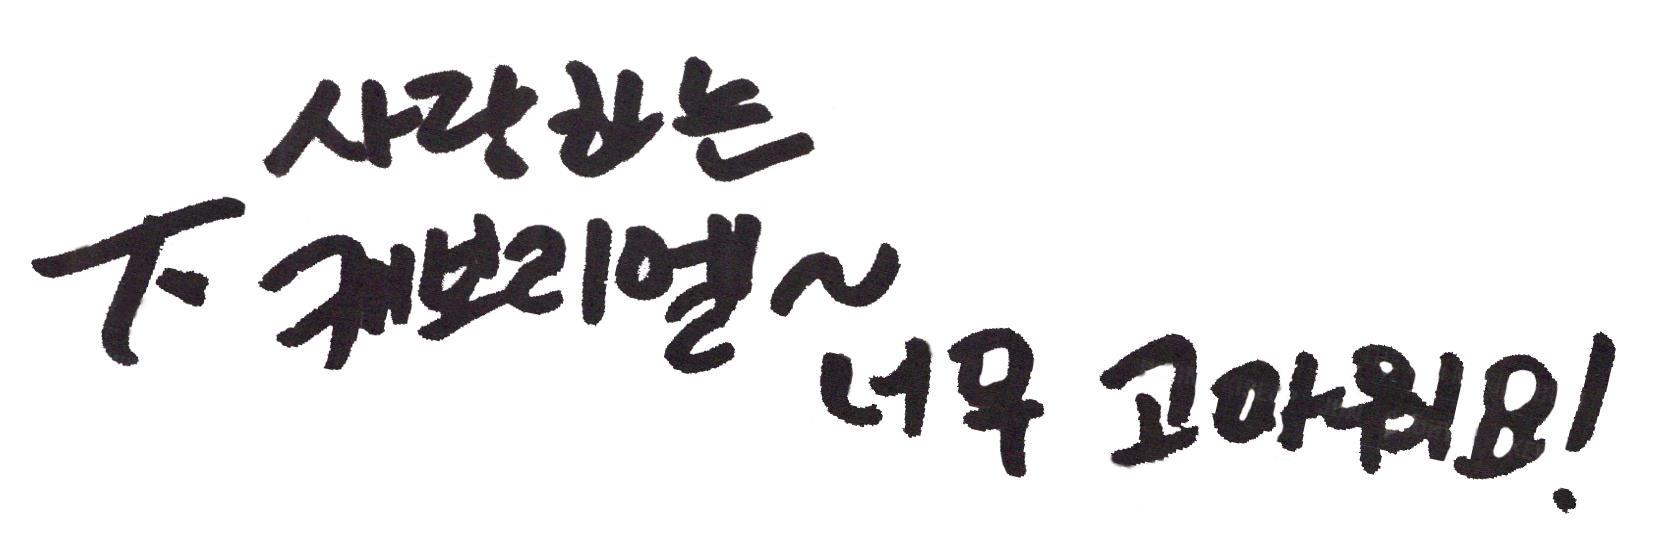 사랑하는
下 케보리엘~
너무 고마워요!